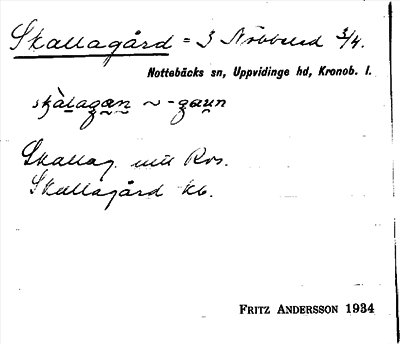 Skallagård = 3 Nöbbled 3/4.
Nottebäcks sn, Uppvidinge hd, Kronob. l.
Skallag. mit Ros.
Skallagård kb.
FRITZ ANDERSSON 1934